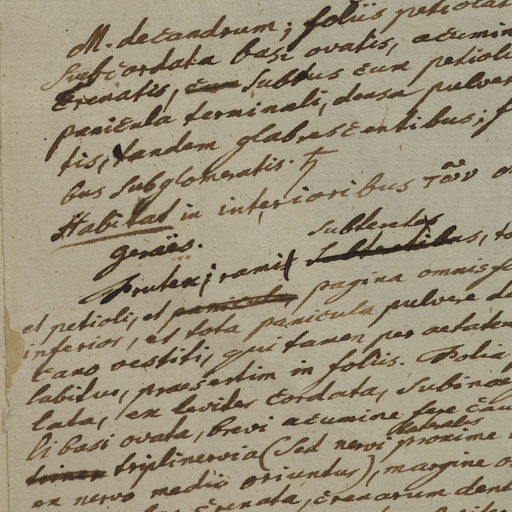 M. decandrum; foliis petiolat
Subcordata basi ovatis, acumin
crenatis, subtus cum petioli
panicula terminali, densa pulver
tis, tandem glabrescentibus; f
bus subglomeratis. ♄
Habitat in interioribus τῶν
geraës.
subteretes
Frutex; rami
et petioli, et pagina omnis
inferior, et tota panicula pulvere de
cano vestiti, qui tamen per aetatem
labitur, praesertim in foliis. Folia
lata, ex leviter cordata, subinae
li basi ovata, brevi acumine fere
laterales
triplinervia (sed nervi proxime
ex nervo medio oriuntur), margine
crenata, crenarum dent